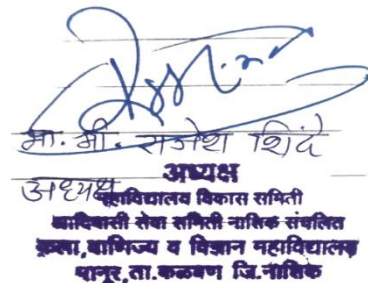 मा. श्री. राजेश शिंदे
अध्यक्ष
अध्यक्ष
महाविद्यालय विकास समिती
आदिवासी सेवा समिती नाशिक संचलित
कला, वाणिज्य व विज्ञान महाविद्यालय
मानूर, ता. कळवण जि. नाशिक